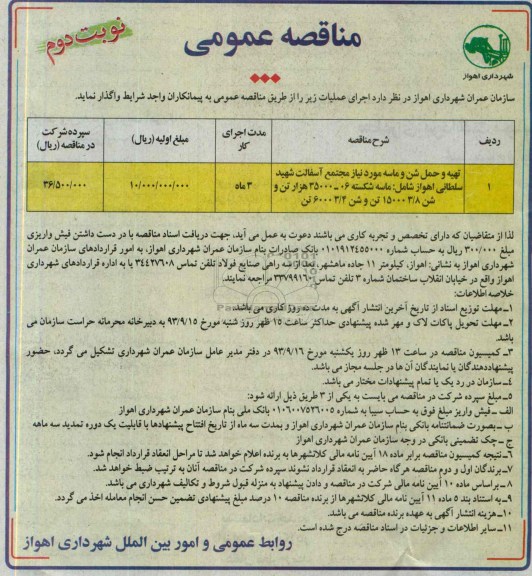 نوبت دوم
مناقصه عمومی
شهرداری اهواز
سازمان عمران شهرداری اهواز در نظر دارد اجرای عملیات زیر را از طریق مناقصه عمومی به پیمانکاران واجد شرایط واگذار نماید.
ردیف
شرح مناقصه
مدت اجرای کار
مبلغ اولیه (ریال)
سپرده شرکت در مناقصه (ریال)
۱
تهیه و حمل شن و ماسه مورد نیاز مجتمع آسفالت شهید
سلطانی اهواز شامل: ماسه شکسته ۰۶ــ۳۵۰۰۰ هزار تن و
شن ۳/۸ ۱۵۰۰۰ تن و شن ۳/۴ ۶۰۰۰ تن
۳ ماه
۱۰/۰۰۰/۰۰۰/۰۰۰
۳۶/۵۰۰/۰۰۰
لذا از متقاضیان که دارای تخصص و تجربه کاری می باشند دعوت به عمل می آید، جهت دریافت اسناد مناقصه با در دست داشتن فیش واریزی
مبلغ ۳۰۰/۰۰۰ ریال به حساب شماره ۰۱۰۱۹۱۲۴۵۵۰۰۰ بانک صادرات بنام سازمان عمران شهرداری اهواز، به امور قراردادهای سازمان عمران
شهرداری اهواز به نشانی: اهواز، کیلومتر ۱۱ جاده ماهشهر، بعد از سه راهی صنایع فولاد تلفن تماس ۳۴۴۲۷۶۰۸ یا به اداره قراردادهای شهرداری
اهواز واقع در خیابان انقلاب ساختمان شماره ۳ تلفن تماس ۳۳۷۹۹۱۶۰ مراجعه نمایند.
خلاصه اطلاعات:
۱ــ مهلت توزیع اسناد از تاریخ آخرین انتشار آگهی به مدت ده روز کاری می باشد.
۲ــ مهلت تحویل پاکات لاک و مهر شده پیشنهادی حداکثر ساعت ۱۵ ظهر روز شنبه مورخ ۹۳/۹/۱۵ به دبیرخانه محرمانه حراست سازمان می
باشد.
۳ــ کمیسیون مناقصه در ساعت ۱۳ ظهر روز یکشنبه مورخ ۹۳/۹/۱۶ در دفتر مدیر عامل سازمان عمران شهرداری تشکیل می گردد، حضور
پیشنهاددهندگان یا نمایندگان آن ها در جلسه مجاز می باشد.
۴ــ سازمان در رد یک یا تمام پیشنهادات مختار می باشد.
۵ــ مبلغ سپرده شرکت در مناقصه می بایست به یکی از ۳ طریق ذیل ارائه شود:
الف ــ فیش واریز مبلغ فوق به حساب سیبا به شماره ۰۱۰۶۰۰۷۵۲۶۰۰۵ بانک ملی بنام سازمان عمران شهرداری اهواز
ب ــ بصورت ضمانتنامه بانکی بنام سازمان عمران شهرداری اهواز و بمدت سه ماه از تاریخ افتتاح پیشنهادها با قابلیت یک دوره تمدید سه ماهه
ج ــ چک تضمینی بانکی در وجه سازمان عمران شهرداری اهواز
۶ــ نتیجه کمیسیون مناقصه برابر ماده ۱۸ آیین نامه مالی کلانشهرها به برنده اعلام خواهد شد تا مراحل انعقاد قرارداد انجام شود.
۷ــ برندگان اول و دوم مناقصه هرگاه حاضر به انعقاد قرارداد نشوند سپرده شرکت در مناقصه آنان به ترتیب ضبط خواهد شد.
۸ــ براساس ماده ۱۰ آیین نامه مالی شرکت در مناقصه و دادن پیشنهاد به منزله قبول شروط و تکالیف شهرداری می باشد.
۹ــ به استناد بند ۵ ماده ۱۱ آیین نامه مالی کلانشهرها از برنده مناقصه ۱۰ درصد مبلغ پیشنهادی تضمین حسن انجام معامله اخذ می گردد.
۱۰ــ هزینه انتشار آگهی به عهده برنده مناقصه می باشد.
۱۱ــ سایر اطلاعات و جزئیات در اسناد مناقصه درج شده است.
روابط عمومی و امور بین الملل شهرداری اهواز